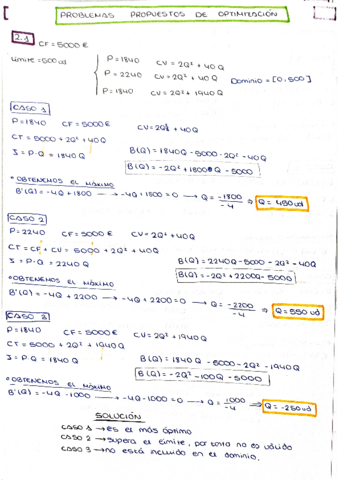 PROBLEMAS PROPUESTOS DE OPTIMIZACIÓN
2.1 CF = 5000 €
Límite = 500 ud
P = 1840 CV = 2Q² + 40Q
P = 2240 CV = 2Q² + 40Q Dominio = [0,500]
P = 1840 CV = 2Q² + 1940Q
CASO 1
P = 1840 CF = 5000 € CV = 2Q² + 40Q
CT = 5000 + 2Q² + 40Q
I = P·Q = 1840Q B(Q) = 1840Q - 5000 - 2Q² - 40Q
B(Q) = -2Q² + 1800Q - 5000
* OBTENEMOS EL MÁXIMO
B'(Q) = -4Q + 1800 → -4Q + 1800 = 0 → Q = -1800/-4 ⇒ Q = 450 ud
CASO 2
P = 2240 CF = 5000 € CV = 2Q² + 40Q
CT = CF + CV = 5000 + 2Q² + 40Q
I = P·Q = 2240Q B(Q) = 2240Q - 5000 - 2Q² - 40Q
B(Q) = -2Q² + 2200Q - 5000
* OBTENEMOS EL MÁXIMO
B'(Q) = -4Q + 2200 → -4Q + 2200 = 0 → Q = -2200/-4 ⇒ Q = 550 ud
CASO 3
P = 1840 CF = 5000 € CV = 2Q² + 1940Q
CT = 5000 + 2Q² + 1940Q
I = P·Q = 1840Q B(Q) = 1840Q - 5000 - 2Q² - 1940Q
B(Q) = -2Q² - 100Q - 5000
* OBTENEMOS EL MÁXIMO
B'(Q) = -4Q - 1000 → -4Q - 1000 = 0 → Q = 1000/-4 ⇒ Q = -250 ud
SOLUCIÓN
CASO 1 → es el más óptimo
CASO 2 → supera el límite, por tanto no es válido
CASO 3 → no está incluido en el dominio.